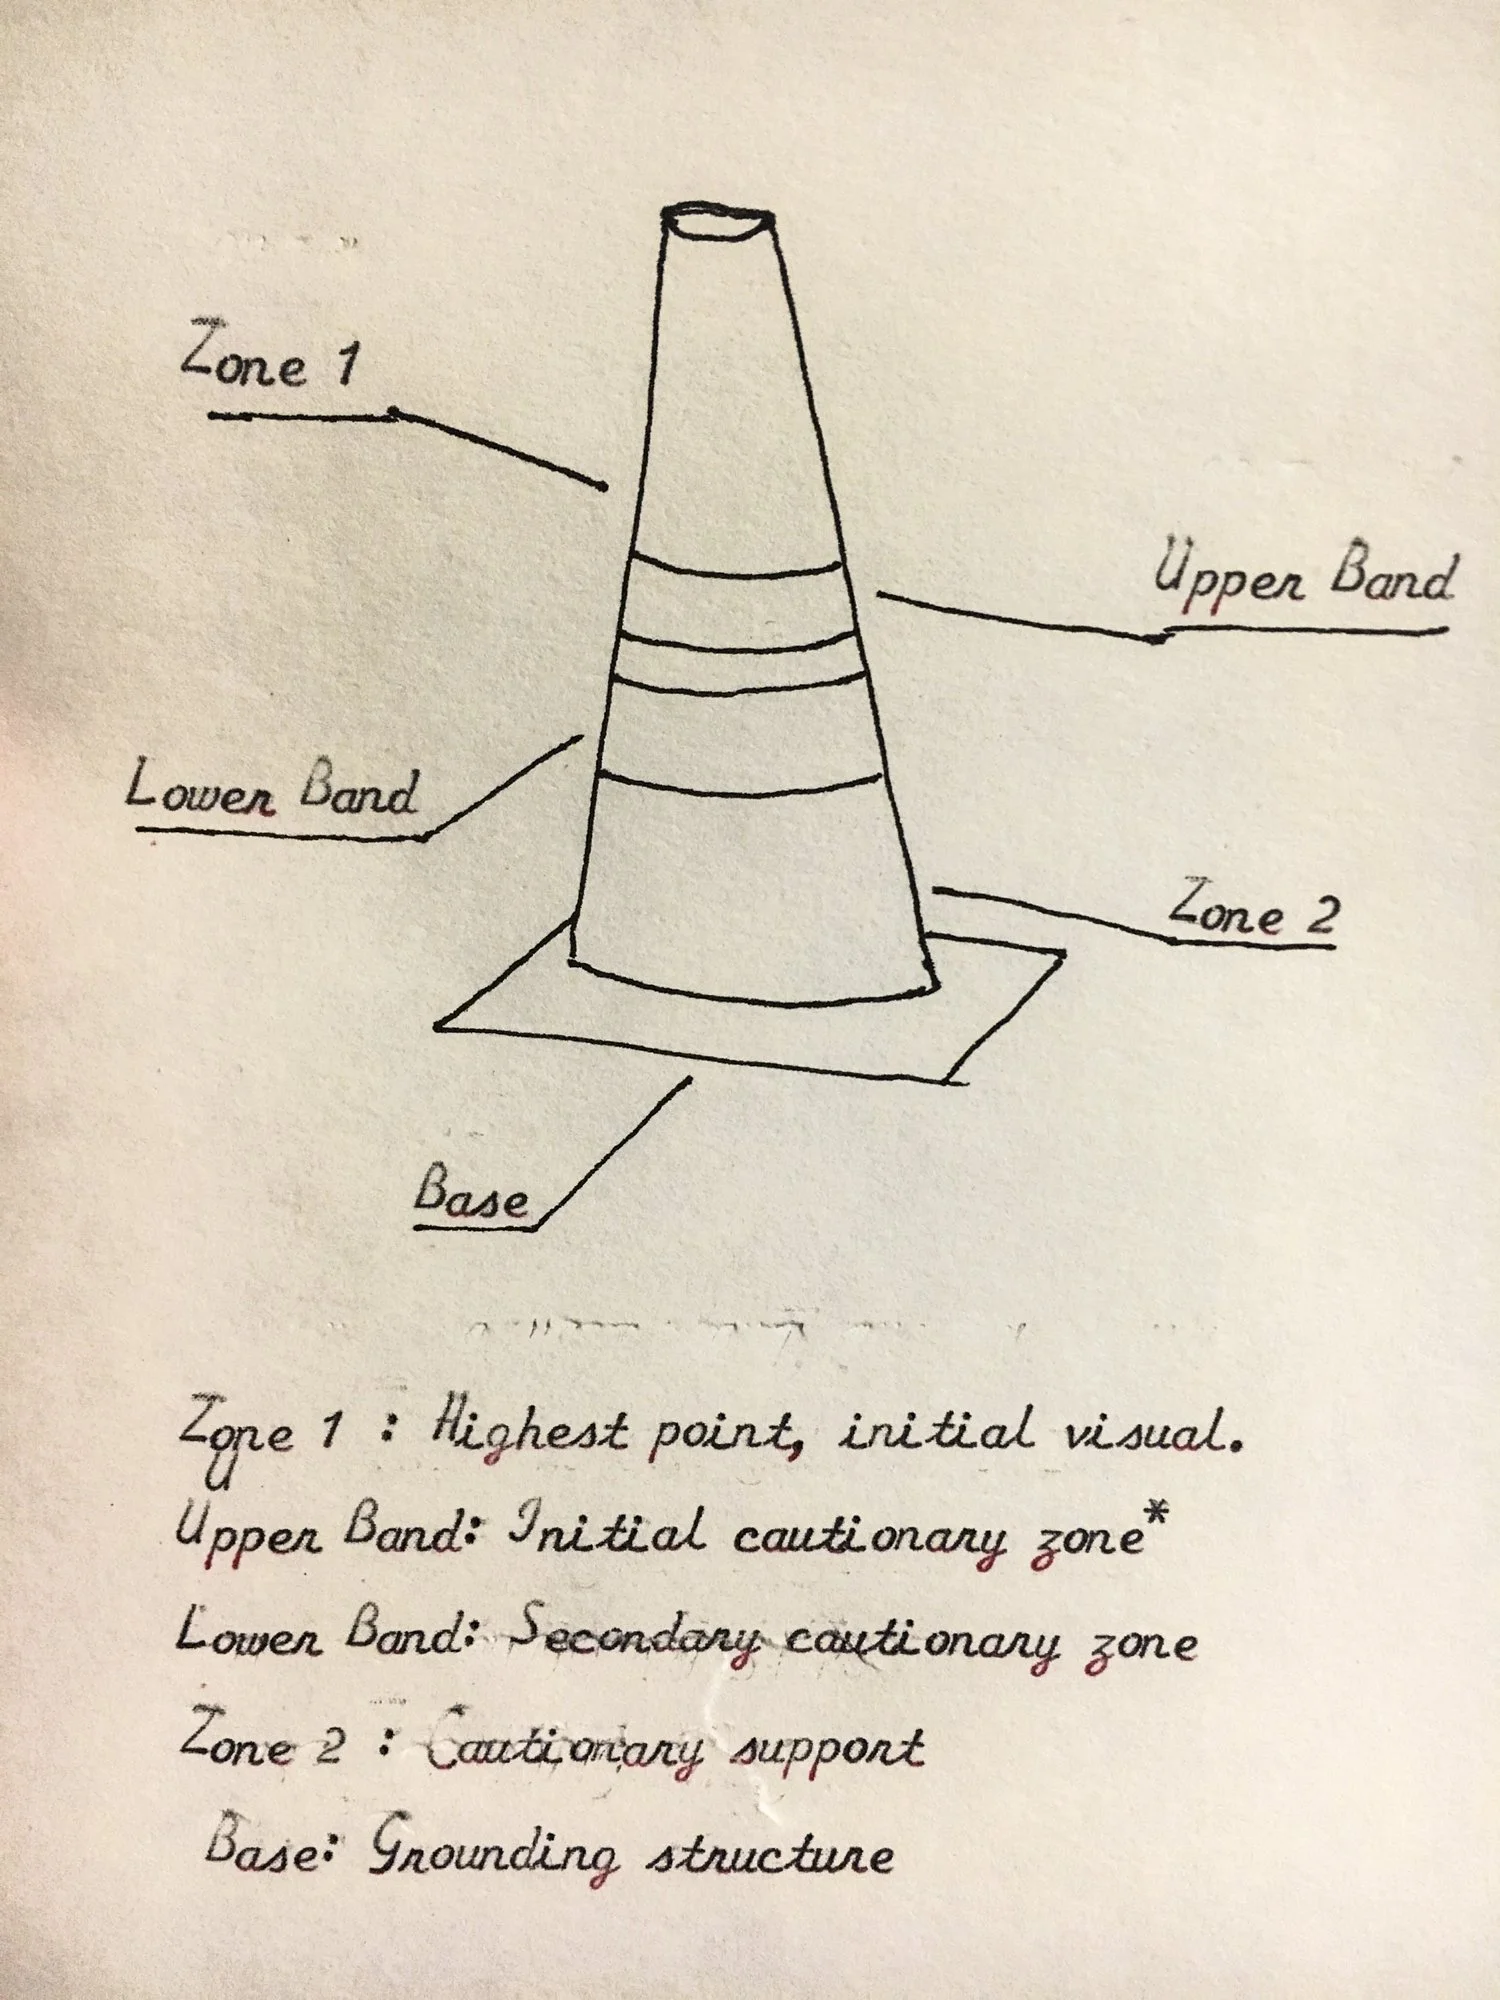 Zone 1
Upper Band
Lower Band
Zone 2
Base
Zone 1 : Highest point, initial visual.
Upper Band: Initial cautionary zone*
Lower Band: Secondary cautionary zone
Zone 2 : Cautionary support
Base: Grounding structure